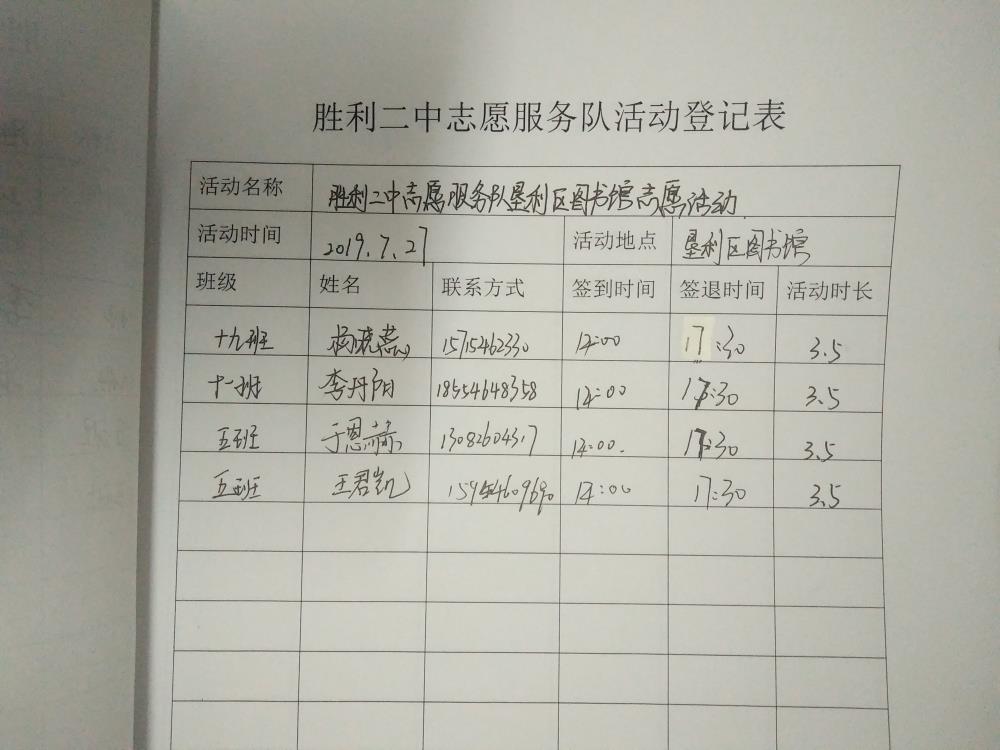 胜利二中志愿服务队活动登记表
活动名称 胜利二中志愿服务队垦利区图书馆志愿活动
活动时间 2019.7.27 活动地点 垦利区图书馆
班级 姓名 联系方式 签到时间 签退时间 活动时长
十九班 杨晓燕 15715462330 14:00 17:30 3.5
十一班 李丹阳 18554648358 14:00 17:30 3.5
五班 于恩赫 1308260431.7 14:00. 17:30 3.5
五班 王君凯 14:00 17:30 3.5